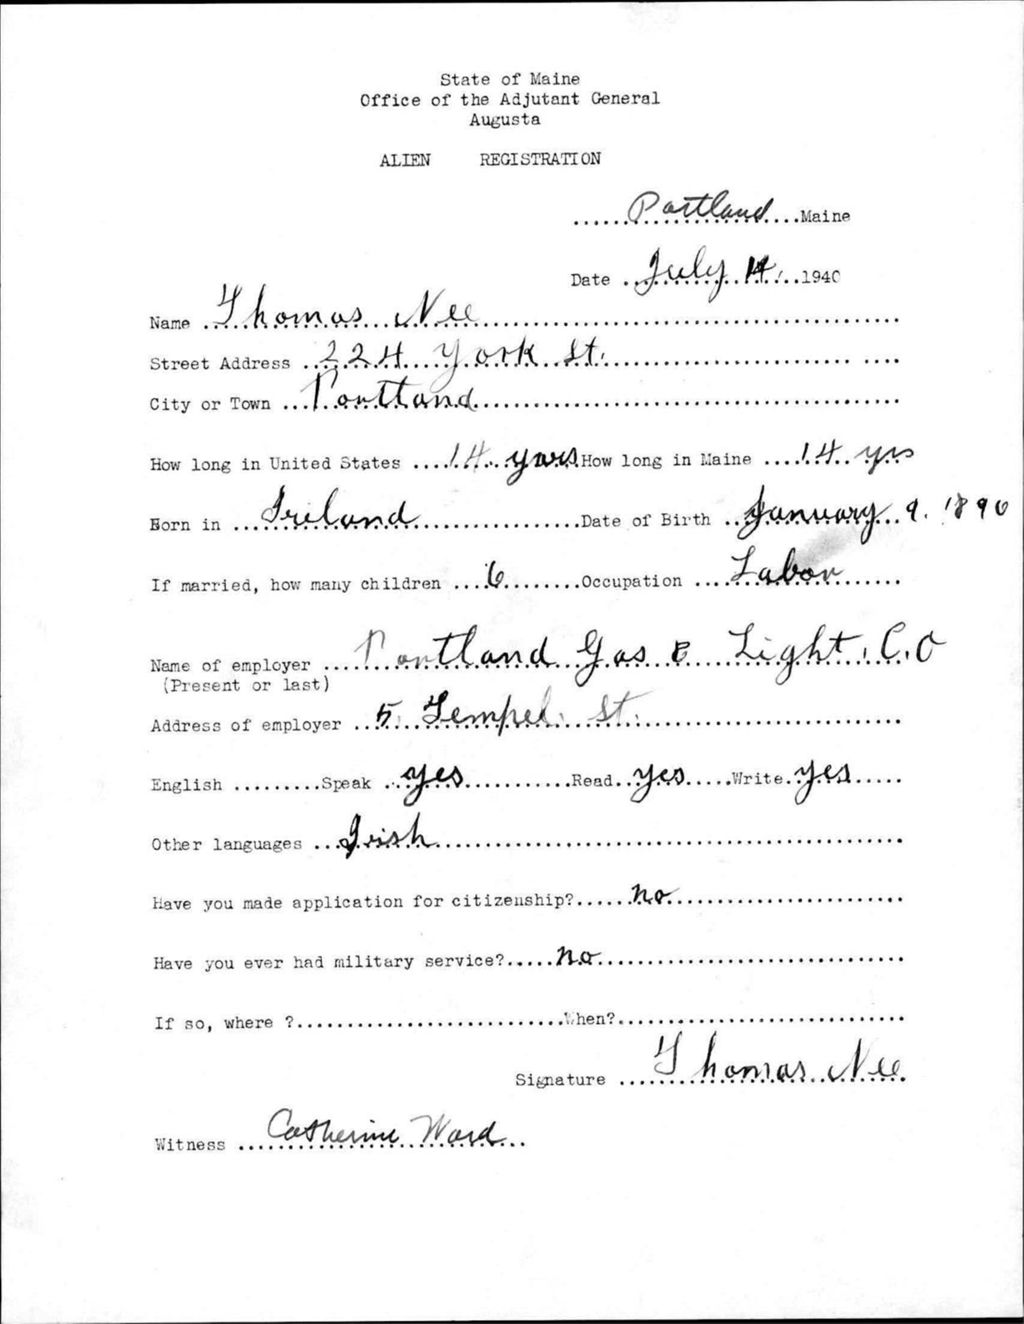 State of Maine
Office of the Adjutant General
Augusta
ALIEN REGISTRATION
......Portland....Maine
Date ..July 14,...1940
Name ..Thomas Nee..........
Street Address ..224 York St...........
City or Town ...Portland..........
How long in United States ....14 years.How long in Maine ....14 yrs
Born in ...Ireland..........Date of Birth ..January 9. 1896
If married, how many children ....6........Occupation ....Labor......
Name of employer ....Portland Gas & Light. C.O
(Present or last)
Address of employer ..5. Tempel. St...........
English .........Speak ..yes...........Read..yes.....Write.yes.....
Other languages ...Irish..........
Have you made application for citizenship?......no..........
Have you ever had military service?.....no..........
If so, where ?...........................When?..............................
Signature ....Thomas Nee
Witness ...Catherine Ward...